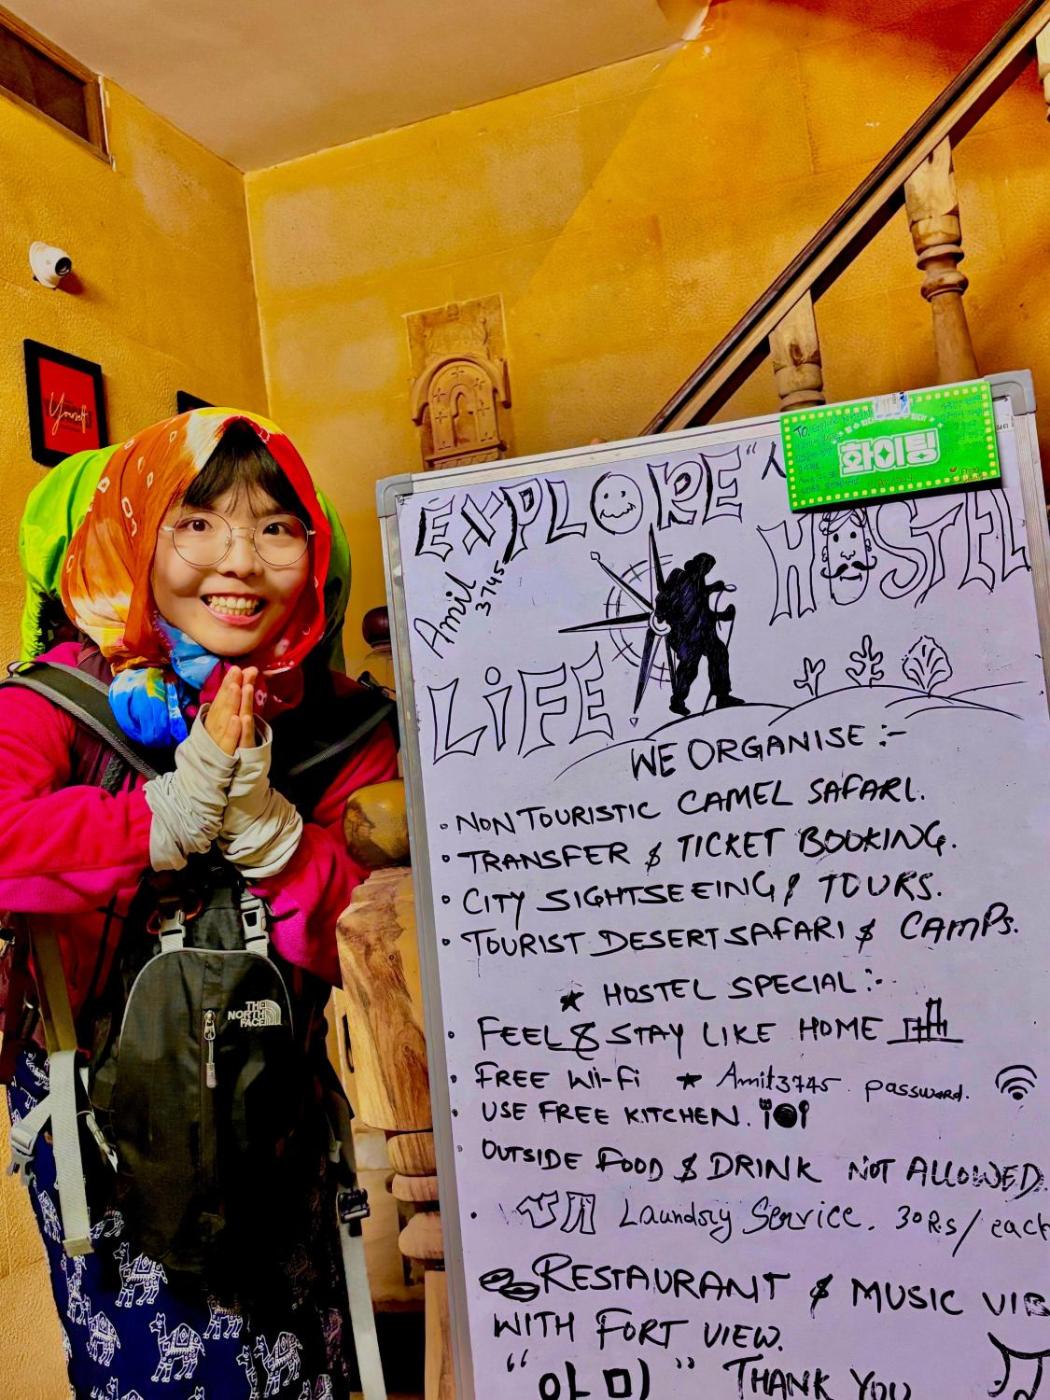 Yourself
EXPLORE "
화이팅
HOSTEL
Amil
3745
LiFE
WE ORGANISE :-
• NON TOURISTIC CAMEL SAFARI.
• TRANSFER & TICKET BOOKING.
• CITY SIGHTSEEING / TOURS.
• TOURIST DESERT SAFARI & CAMPS.
★ HOSTEL SPECIAL :-
• FEEL & STAY LIKE HOME
• FREE Wi-Fi ★ Amit3745. password.
• USE FREE KITCHEN.
• OUTSIDE FOOD & DRINK NOT ALLOWED.
• Laundry Service. 30Rs/each
RESTAURANT & MUSIC VIB
WITH FORT VIEW.
" THANK YOU
THE
NORTH
FACE